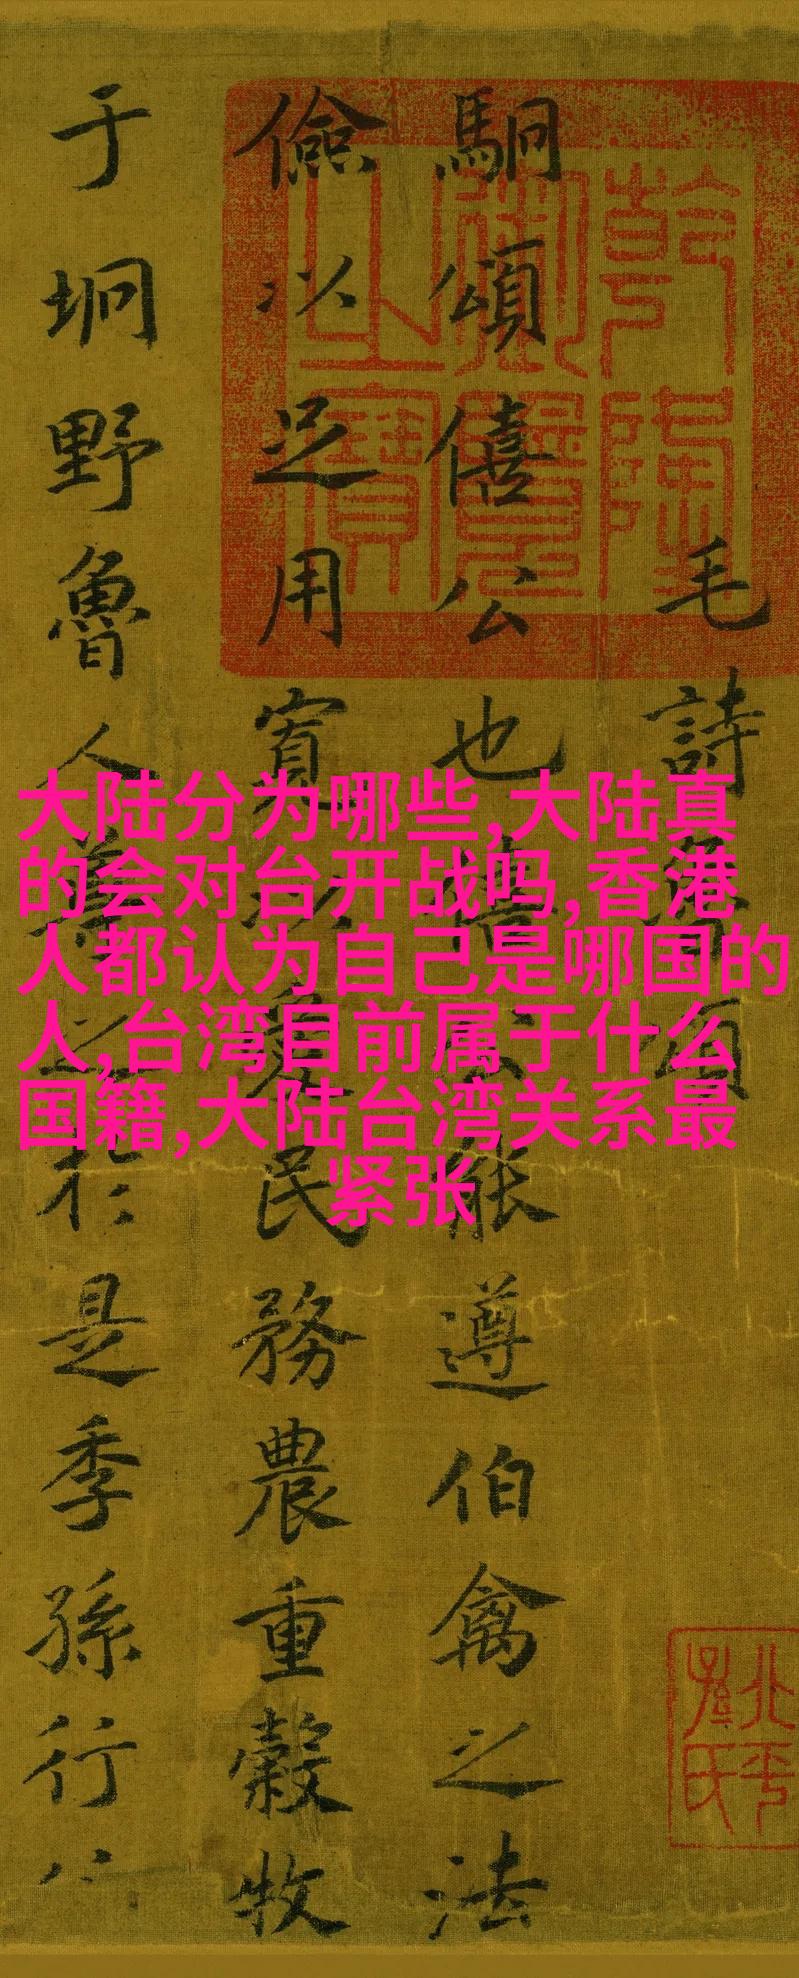 毛詩魯頌
駉頌僖公也僖公能遵伯禽之法
儉以足用寬以愛民務農重穀牧
于坰野魯人尊之於是季孫行
乾隆御覽之寶
大陆分为哪些,大陆真
的会对台开战吗,香港
人都认为自己是哪国的
人,台湾目前属于什么
国籍,大陆台湾关系最
紧张